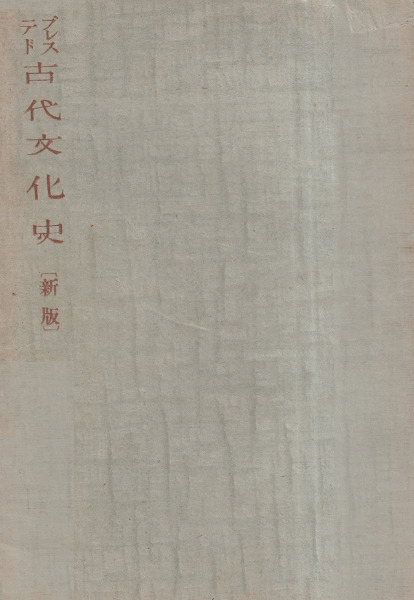 ブレス
テド
古代文化史
［新版］